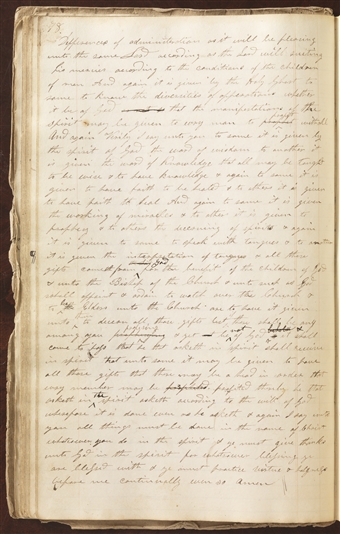 78.
differences of administration as it will be pleasing
unto the same Lord according as the Lord will suiting
his mercies according to the conditions of the children
of men And again it is given by the Holy Ghost to
some to know the diversities of opperations whether
it be of God that the manifestations of the
spirit may be given to evry man to profit withall
And again Verily I say unto you to some it is given by
the spirit of God the word of wisdom to another it
is given the word of Knowledge that all may be taught
to be wise & to have knowledge & again to some it is
given to have faith to be healed & to others it is given
to have faith to heal And again to some it is given
the working of miracles & to other it is given to
prophecy & to others the decerning of spirits & again
it is given to some to speak with tongues & to another
it is given the interpretation of tongues & all these
gifts cometh from God for the benefit of the children of God
& unto the Bishop of the Church & unto such as God
shall appoint & ordain to watch over the Church &
to be Elders unto the Church are to have it given
unto to decern all those gifts lest there shall be any
among you professing & yet not be of God & it shall
come to pass that he that asketh in spirit shall receive
in spirit that unto some it may be given to have
all these gifts that there may be a head in order that
evry member may be profited thereby he that
asketh in the spirit asketh according to the will of God
wherefore it is done even as he asketh & again I say unto
you all things must be done in the name of Christ
whatsoever you do in the spirit & ye must give thanks
unto God in the spirit for whatsoever blessing ye
are blessed with & ye must practice virtue & holyness
before me continually even so Amen